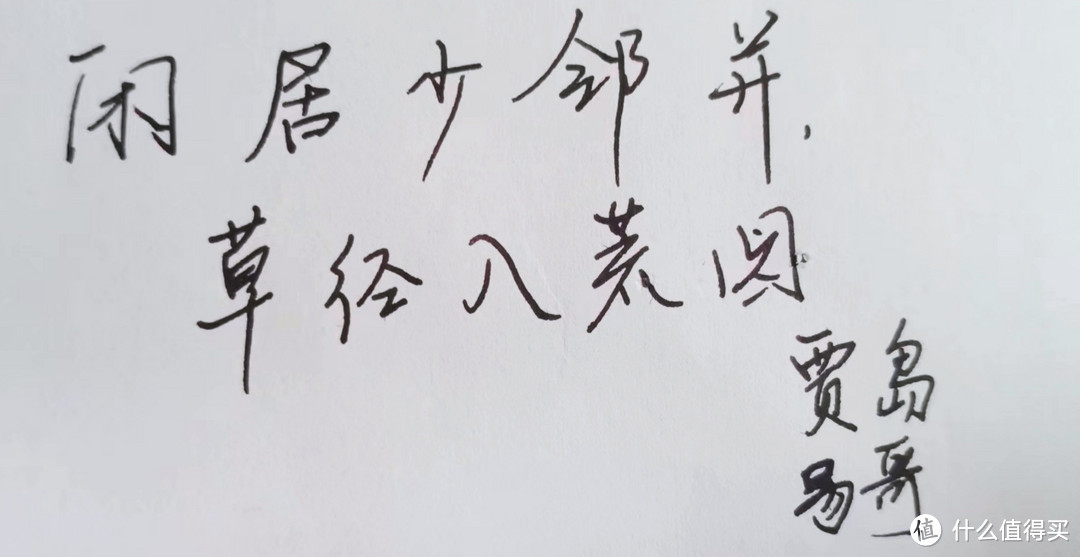 闲居少邻并，
草径入荒园
贾岛
易哥
值 什么值得买